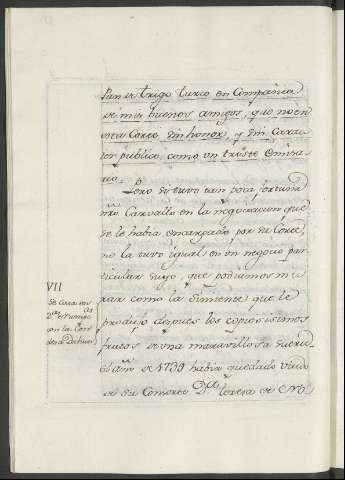 Pan de trigo turco en Compañia
de mis buenos amigos, que no en
esta Corte sin honor, y sin Carac
ter publico, como un triste Emisa
rio.
Pero si tuvo tan poca fortuna
nro. Carvallo en la negociacion que
se le habia encargado por su Corte,
no la tuvo igual en un negocio par
ticular suyo, que podriamos mi
rar como la simiente que le
produjo despues los copiosisimos
frutos de una maravillosa
El año de 1739 habia quedado viudo
de su Consorte Dª Teresa de
VII
Se casa en
con la Con
desa de Dahun